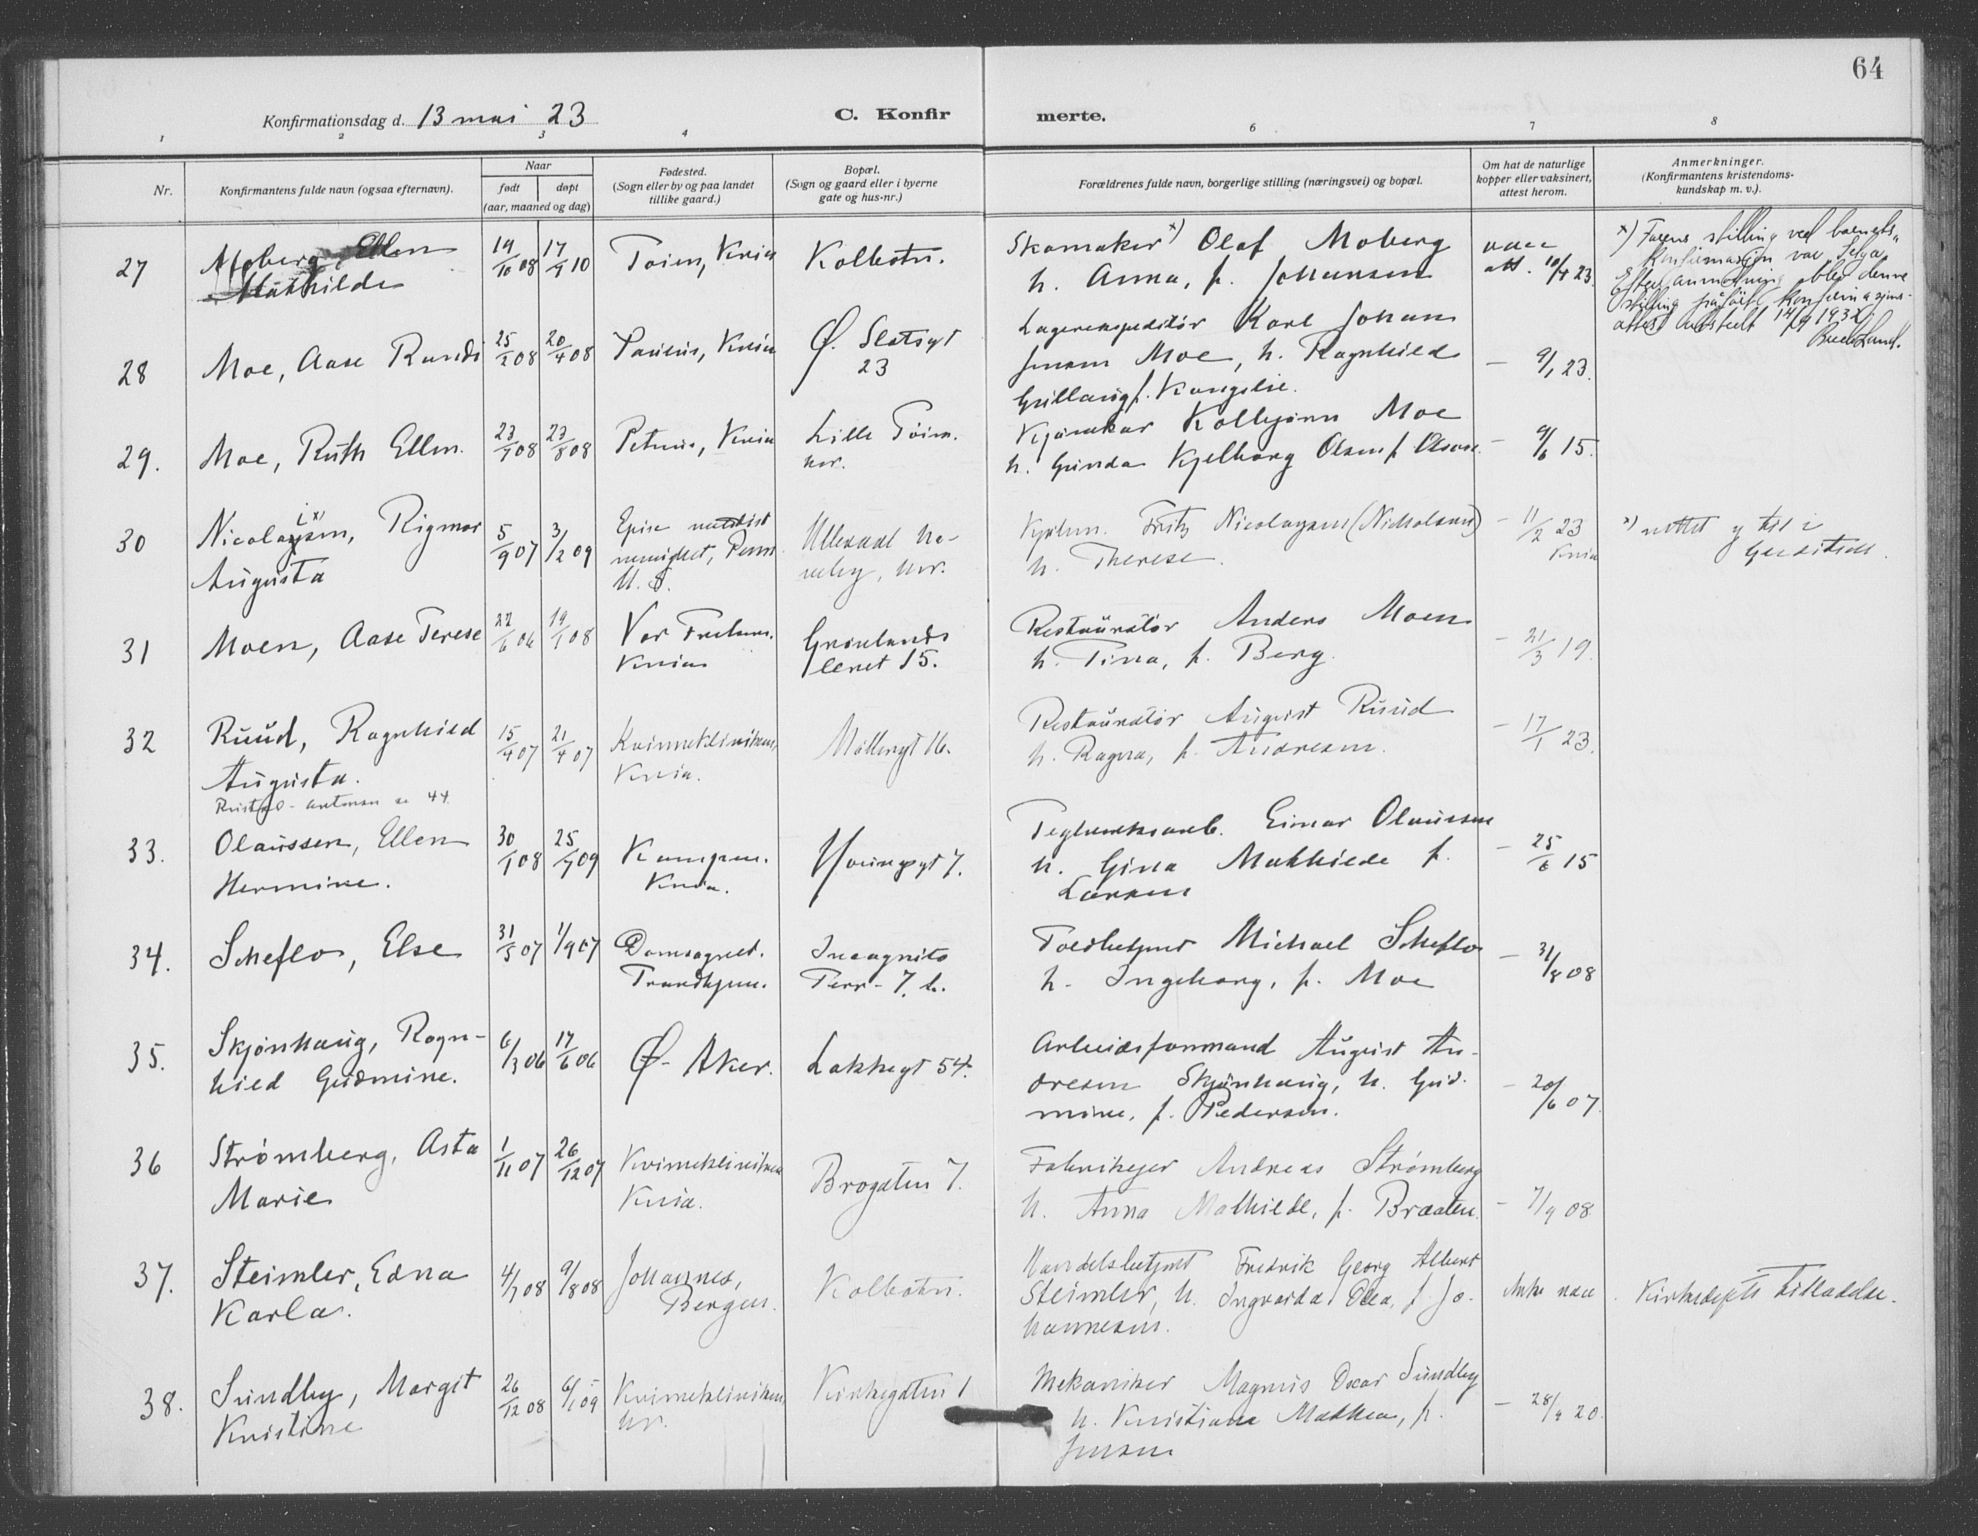 64
Konfirmationsdag d. 13 mai 23
C. Konfirmerte.
1 2 3 4 6 7 8
Nr.
Konfirmantens fulde navn (ogsaa efternavn).
Naar
født døpt
(aar, maaned og dag)
Fødested.
(Sogn eller by og paa landet
tillike gaard.)
Bopæl.
(Sogn og gaard eller i byerne
gate og hus-nr.)
Forældrenes fulde navn, borgerlige stilling (næringsvei) og bopæl.
Om hat de naturlige
kopper eller vaksinert,
attest herom.
Anmerkninger.
(Konfirmantens kristendoms-
kundskap m. v.).
27
Moberg, Ellen
Mathilde
19/10 08
17/9 10
Tøien, Kria
Kolbotn.
Skomaker x) Olaf Moberg
h. Anna, f. Johansen
vacc
att. 10/4 23.
x) Farens stilling ved barnets
konfirmasjon var
Efter anmodning blev denne
stilling påført konfirmasjons-
attest utstedt 14/9 1932
28
Moe, Aase Randi
25/2 08
20/4 08
Paulus, Kria
Ø. Slotsgt
23
Lagerekspeditør Karl Johan
Jensen Moe, h. Ragnhild
f. Kongelie.
- 9/1 23.
29.
Moe, Ruth Ellen.
23/5 08
23/8 08
Petrus, Kria
Lille Tøien.
hr.
Kolbjørn Moe
h. Gunda Kjelborg Olsen f. Olsen
- 9/6 15.
30
Nicolaysen, Rigmor
i x)
Augusta
5/9 07
3/2 09
Epise metodist
menighet, Penn.
U. S.
Ullevaal Ha-
veby, hr.
Fritz Nicolaysen (Nicholsen)
h. Therese.
- 11/2 23
Kria
x) rettet
31
Moen, Aase Terese
22/6 06
19/1 08
Vor Frelsers.
Kria
Grønlands
leret 15.
Restauratør Anders Moen
h. Tina, f. Berg.
- 21/3 19.
32
Ruud, Ragnhild
Augusta.
15/4 07
21/4 07
Kvinneklinikken,
Kria.
Møllergt 16.
Restauratør August Ruud
h. Ragna, f. Andresen.
- 17/1 23.
33.
Olaussen, Ellen
Hermine.
30/1 08
25/7 09
Kampen.
Kria.
7.
Teglverksarb. Einar Olaussen
h. Gina Mathilde f.
Larsen
- 25/6 15
34.
Scheflo, Else
31/5 07
1/9 07
Domsognet.
Trondhjem.
Incognito
Terr- 7. b.
Toldbetjent Michael Scheflo
h. Ingeborg, f. Moe
- 31/8 08
35.
Skjønhaug, Ragn-
hild Gudmine.
6/3 06
17/6 06
Ø- Aker.
Lakkegt 54.
Arbeidsformand August An-
dresen Skjønhaug, h. Gud-
mine, f. Pedersen.
- 20/6 07.
36
Strømberg, Asta
Marie
1/11 07
26/12 07
Kvinneklinikken
Kria.
Brogaten 7.
Fabrikejer Andreas Strømberg
h. Anna Mathilde, f. Braaten.
- 7/9 08
37.
Steimler, Edna
Karla.
4/7 08
9/8 08
Johannes,
Bergen.
Kolbotn.
Handelsbetjent Fredrik Georg Albert
Steimler, h. Ingvarda Olea, f. Jo-
hannesen.
ikke vacc
Kirkedepts tilladelse.
38.
Sundby, Margit
Kristine
26/12 08
6/1 09
Kvinneklinikken,
hr.
Kirkegaten 1
Mekaniker Magnus Oscar Sundby
h. Kristiane Mathea, f.
Jensen
- 28/4 20.